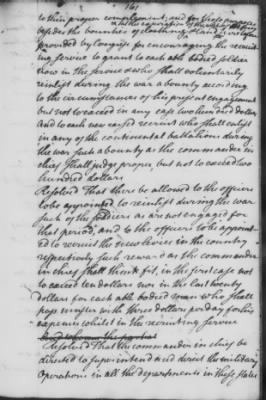 161
to their proper complement, and for
besides the bounties of clothing & land heretofore
provided by Congress for encouraging the recruit
ing service to grant to each able bodied soldier
now in the service & who shall voluntarily
reinlist during the war a bounty according
to the circumstances of his present engagement
but not to exceed in any case two hundred dollars
And to each new raised recruit who shall enlist
in any of the continental battalions during
the war such a bounty as the commander in
chief shall judge proper, but not to exceed two
hundred dollars
Resolved That there be allowed to the officers
to be appointed to reinlist during the war
such of the soldiers as are not engaged for
that period, and to the officers to be appoint
ed to recruit the new levies in the country
respectively such reward as the commander
in chief shall think fit, in the first case not
to exceed ten dollars nor in the last twenty
dollars for each able bodied man who shall
pass muster with three dollars per day for his
expences whilst in the recruiting service
Resolved That the commander in chief be
directed to superintend and direct the military
operations in all the departments in these States